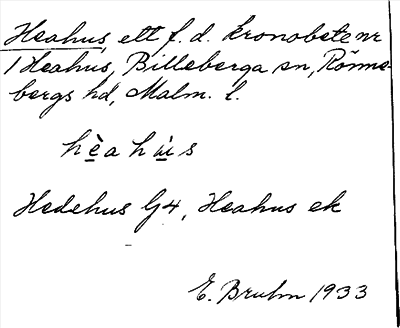 Heahus, ett f. d. kronobete nr
1 Heahus, Billeberga sn, Rönne-
bergs hd, Malm. l.
hèahùs
Hedehus G4, Heahus ek
E. Bruhn 1933